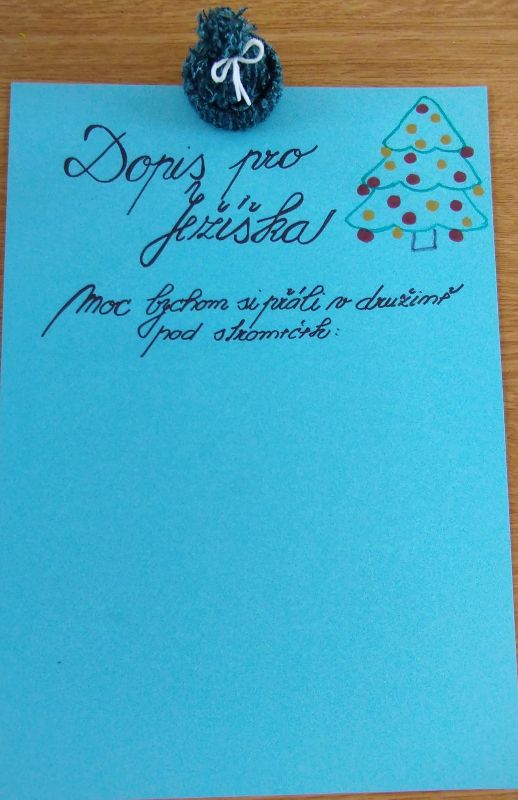 Dopis pro
Ježíška
Moc bychom si přáli v družině
pod stromeček: